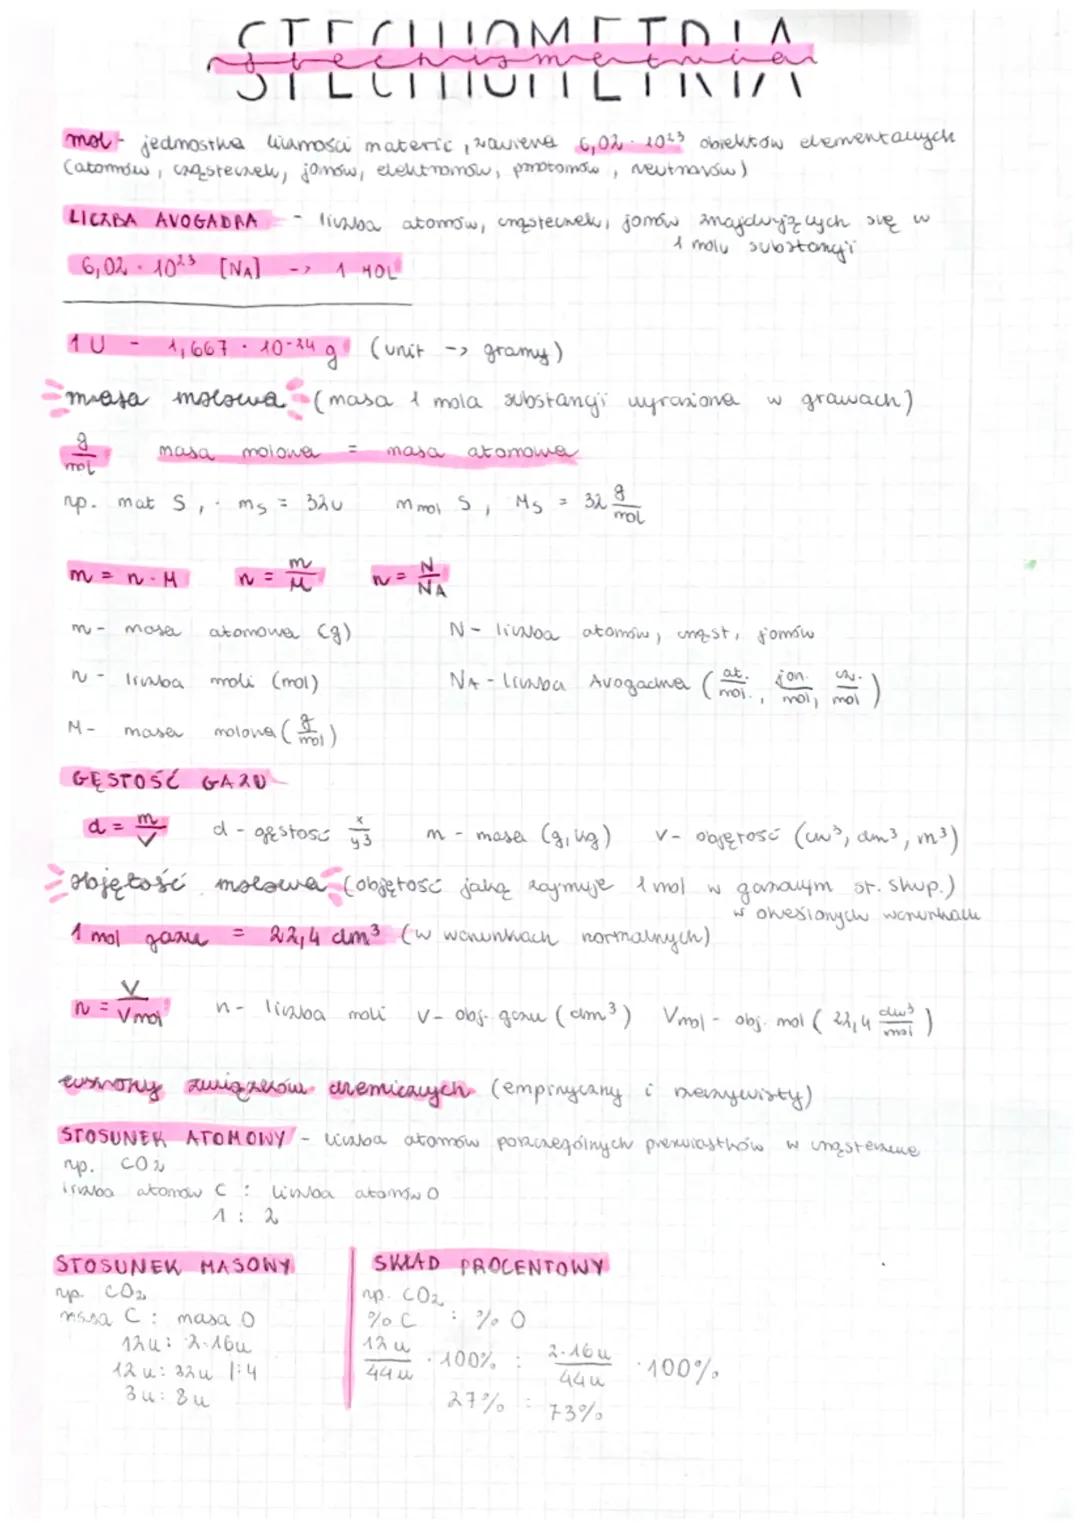 STECHIOMETRIA
stechiometria
mol - jednostka liczności materii, zawiera 6,02 · 10²³ obiektów elementarnych
(atomów, cząsteczek, jonów, elektronów, protonów, neutronów)
LICZBA AVOGADRA - liczba atomów, cząsteczek, jonów znajdujących się w
1 molu substancji
6,02 · 10²³ [NA] -> 1 MOL
1 U - 1,667 · 10⁻²⁴ g (unit -> gramy)
masa molowa (masa 1 mola substancji wyrażona w gramach)
g/mol masa molowa = masa atomowa
np. mat S, ms = 32u mmol S, Ms = 32 g/mol
m = n · M n = m/M n = N/NA
m - masa atomowa (g) N - liczba atomów, cząst, jonów
n - liczba moli (mol) NA - liczba Avogadra (at./mol., jon./mol, cz./mol)
M - masa molowa (g/mol)
GĘSTOŚĆ GAZU
d = m/V d - gęstość x/y³ m - masa (g, kg) V - objętość (cm³, dm³, m³)
objętość molowa (objętość jaką zajmuje 1 mol w gazowym st. skup.)
w określonych warunkach
1 mol gazu = 22,4 dm³ (w warunkach normalnych)
n = V/Vmol n - liczba moli V - obj. gazu (dm³) Vmol - obj. mol (22,4 dm³/mol)
wzory związków chemicznych (empiryczny i rzeczywisty)
STOSUNEK ATOMOWY - liczba atomów poszczególnych pierwiastków w cząsteczce
np. CO₂
liczba atomów C : liczba atomów O
1 : 2
STOSUNEK MASOWY
np. CO₂
masa C : masa O
12u : 2·16u
12u : 32u |:4
3u : 8u
SKŁAD PROCENTOWY
np. CO₂
% C : % O
12u/44u · 100% : 2·16u/44u · 100%
27% : 73%